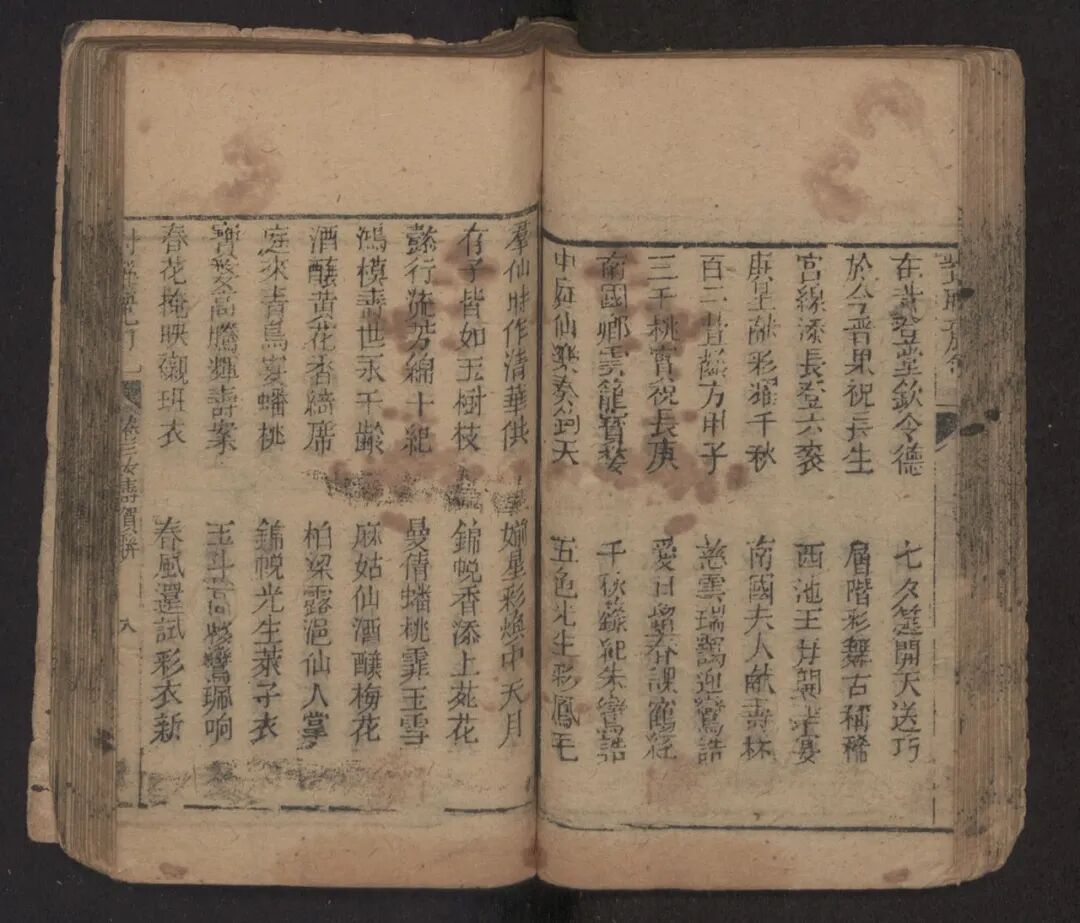 在昔登堂欽令德 七夕筵開天送巧
於今晋果祝長生 層階彩舞古稱稀
宮線添長登六袠 西池王母開華宴
庚星献彩耀千秋 南國夫人献壽杯
百二 方甲子 慈雲瑞靄迎鸞誥
三千桃實祝長庚 愛日 春課鶴經
南國鄉雲籠寳婺 千秋籙紀朱鸞誥
中庭仙樂奏鈞天 五色光生彩鳳毛
羣仙時作清華供 星彩煥中天月
有子皆如玉樹枝 錦帨香添上苑花
懿行流芳綿十紀 曼倩蟠桃霏玉雪
鴻模壽世永千齡 麻姑仙酒釀梅花
酒釀黄花香綺席 柏梁露浥仙人掌
庭來青鳥宴蟠桃 錦帨光生萊子衣
寶婺高騰輝壽案 玉斗高懸鸞珮响
春花掩映襯班衣 春風還試彩衣新
卷三女壽賀聯 八